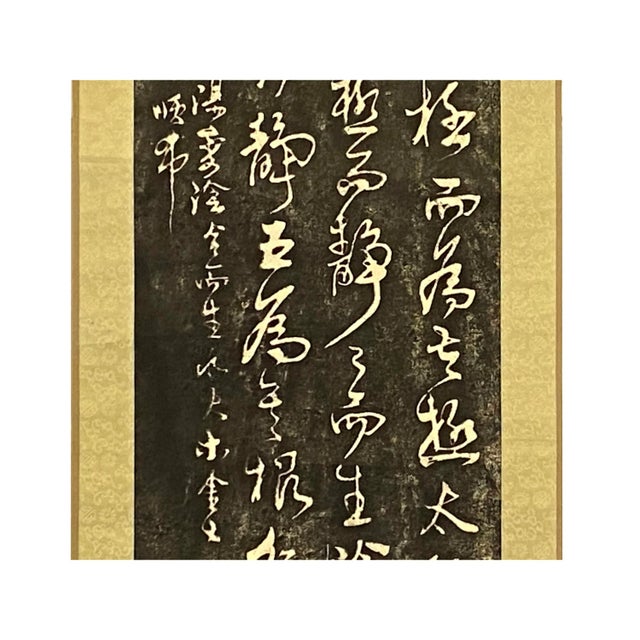 極而為太極太
極而靜々而生陰
靜互為其根
陽變陰合而生水火木金土
順布